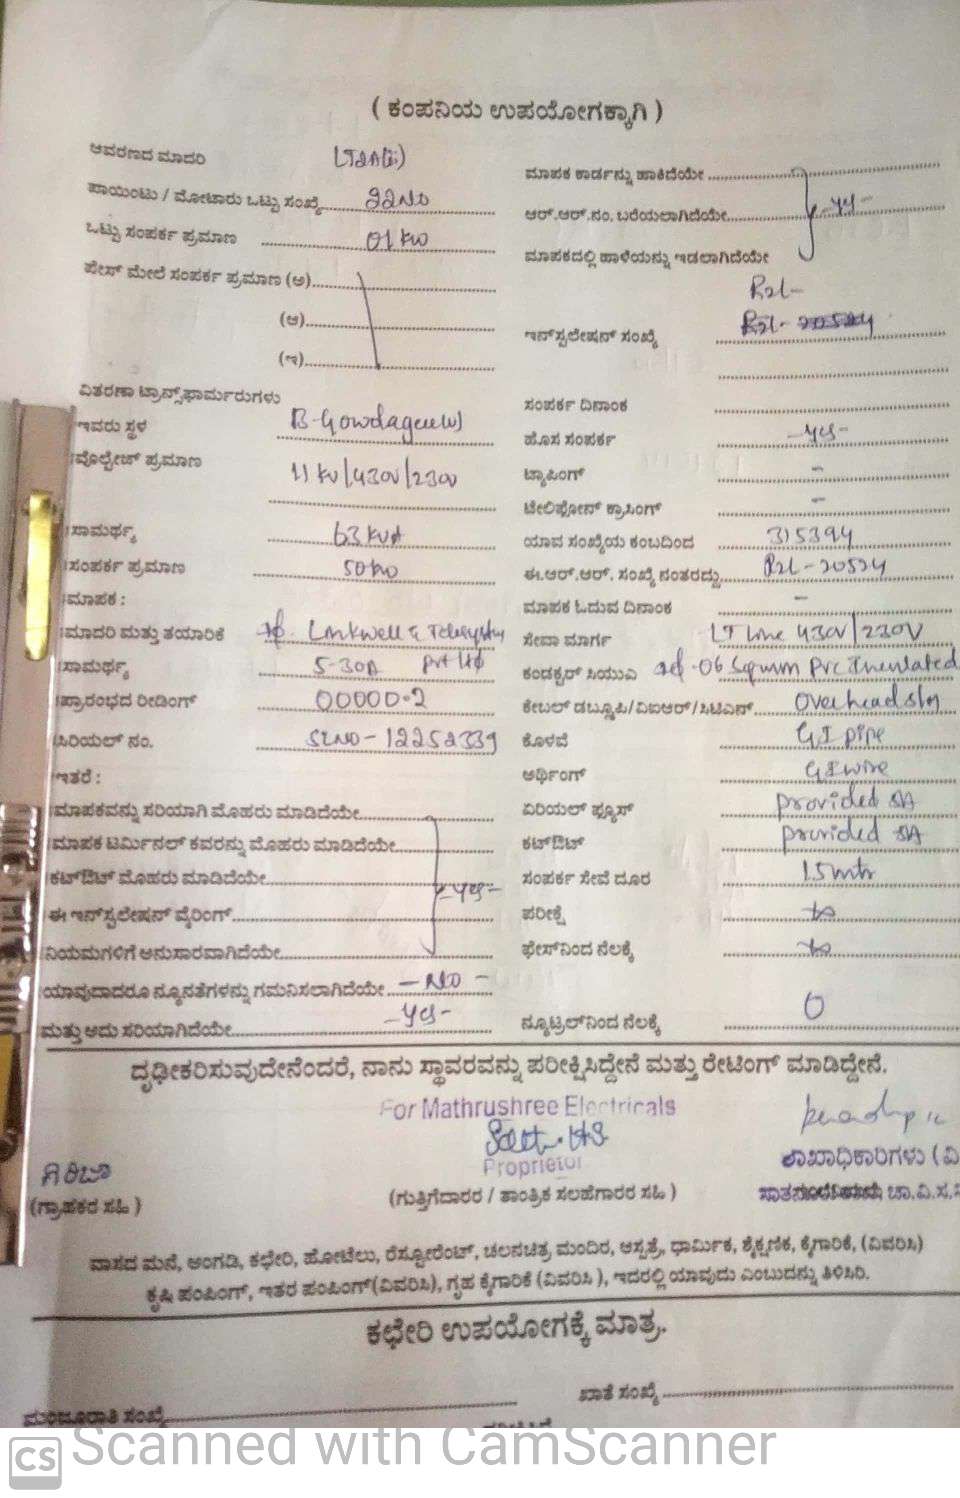 ( ಕಂಪನಿಯ ಉಪಯೋಗಕ್ಕಾಗಿ )
ಆವರಣದ ಮಾದರಿ LT2A(ii)
ಪಾಯಿಂಟು / ಮೋಟಾರು ಒಟ್ಟು ಸಂಖ್ಯೆ
ಒಟ್ಟು ಸಂಪರ್ಕ ಪ್ರಮಾಣ 01 KW
ಪೇಸ್ ಮೇಲೆ ಸಂಪರ್ಕ ಪ್ರಮಾಣ (ಅ)
(ಆ)
(ಇ)
ವಿತರಣಾ ಟ್ರಾನ್ಸ್‌ಫಾರ್ಮರುಗಳು
ಇವರು ಸ್ಥಳ
ವೊಲ್ಟೇಜ್ ಪ್ರಮಾಣ 11 KV/430V/230V
ಸಾಮರ್ಥ್ಯ 63 KVA
ಸಂಪರ್ಕ ಪ್ರಮಾಣ 50 KW
ಮಾಪಕ :
ಮಾದರಿ ಮತ್ತು ತಯಾರಿಕೆ
ಸಾಮರ್ಥ್ಯ 5-30A Pvt Ltd
ಪ್ರಾರಂಭದ ರೀಡಿಂಗ್ 00000.2
ಸಿರಿಯಲ್ ನಂ. SLNO-12252339
ಇತರೆ :
ಮಾಪಕವನ್ನು ಸರಿಯಾಗಿ ಮೊಹರು ಮಾಡಿದೆಯೇ
ಮಾಪಕ ಟರ್ಮಿನಲ್ ಕವರನ್ನು ಮೊಹರು ಮಾಡಿದೆಯೇ
ಕಟ್‌ಔಟ್ ಮೊಹರು ಮಾಡಿದೆಯೇ -yes-
ಈ ಇನ್‌ಸ್ಟಲೇಷನ್ ವೈರಿಂಗ್
ನಿಯಮಗಳಿಗೆ ಅನುಸಾರವಾಗಿದೆಯೇ
ಯಾವುದಾದರೂ ನ್ಯೂನತೆಗಳನ್ನು ಗಮನಿಸಲಾಗಿದೆಯೇ - NO -
ಮತ್ತು ಅದು ಸರಿಯಾಗಿದೆಯೇ -yes-
ಮಾಪಕ ಕಾರ್ಡನ್ನು ಹಾಕಿದೆಯೇ
ಆರ್.ಆರ್.ನಂ. ಬರೆಯಲಾಗಿದೆಯೇ
ಮಾಪಕದಲ್ಲಿ ಹಾಳೆಯನ್ನು ಇಡಲಾಗಿದೆಯೇ
ಇನ್‌ಸ್ಟಲೇಷನ್ ಸಂಖ್ಯೆ
ಸಂಪರ್ಕ ದಿನಾಂಕ
ಹೊಸ ಸಂಪರ್ಕ -yes-
ಟ್ಯಾಪಿಂಗ್ -
ಟೆಲಿಫೋನ್ ಕ್ರಾಸಿಂಗ್ -
ಯಾವ ಸಂಖ್ಯೆಯ ಕಂಬದಿಂದ 315394
ಈ.ಆರ್.ಆರ್. ಸಂಖ್ಯೆ ನಂತರದ್ದು R2L-20524
ಮಾಪಕ ಓದುವ ದಿನಾಂಕ -
ಸೇವಾ ಮಾರ್ಗ LT line 430V/230V
ಕಂಡಕ್ಟರ್ ಸಿಯುಎ 06 Sqmm Pvc Insulated
ಕೇಬಲ್ ಡಬ್ಲೂಪಿ/ವಿಐಆರ್/ಸಿಟಿಎಸ್ Overhead
ಕೊಳವೆ G.I pipe
ಅರ್ಥಿಂಗ್ G.I wire
ಏರಿಯಲ್ ಫ್ಯೂಸ್ provided 5A
ಕಟ್‌ಔಟ್ provided 5A
ಸಂಪರ್ಕ ಸೇವೆ ದೂರ 15 mtr
ಪರೀಕ್ಷೆ
ಫೇಸ್‌ನಿಂದ ನೆಲಕ್ಕೆ
ನ್ಯೂಟ್ರಲ್‌ನಿಂದ ನೆಲಕ್ಕೆ 0
ದೃಢೀಕರಿಸುವುದೇನೆಂದರೆ, ನಾನು ಸ್ಥಾವರವನ್ನು ಪರೀಕ್ಷಿಸಿದ್ದೇನೆ ಮತ್ತು ರೇಟಿಂಗ್ ಮಾಡಿದ್ದೇನೆ.
For Mathrushree Electricals
Proprietor
ಗಿರಿಜಾ
(ಗ್ರಾಹಕರ ಸಹಿ )
(ಗುತ್ತಿಗೆದಾರರ / ತಾಂತ್ರಿಕ ಸಲಹೆಗಾರರ ಸಹಿ )
ಶಾಖಾಧಿಕಾರಿಗಳು (ವಿ
ಚಾ.ವಿ.ಸ.
ವಾಸದ ಮನೆ, ಅಂಗಡಿ, ಕಛೇರಿ, ಹೋಟೆಲು, ರೆಸ್ಟೋರೆಂಟ್, ಚಲನಚಿತ್ರ ಮಂದಿರ, ಆಸ್ಪತ್ರೆ, ಧಾರ್ಮಿಕ, ಶೈಕ್ಷಣಿಕ, ಕೈಗಾರಿಕೆ, (ವಿವರಿಸಿ)
ಕೃಷಿ ಪಂಪಿಂಗ್, ಇತರ ಪಂಪಿಂಗ್(ವಿವರಿಸಿ), ಗೃಹ ಕೈಗಾರಿಕೆ (ವಿವರಿಸಿ ), ಇದರಲ್ಲಿ ಯಾವುದು ಎಂಬುದನ್ನು ತಿಳಿಸಿರಿ.
ಕಛೇರಿ ಉಪಯೋಗಕ್ಕೆ ಮಾತ್ರ.
ಖಾತೆ ಸಂಖ್ಯೆ
ಮಂಜೂರಾತಿ ಸಂಖ್ಯೆ
CS Scanned with CamScanner